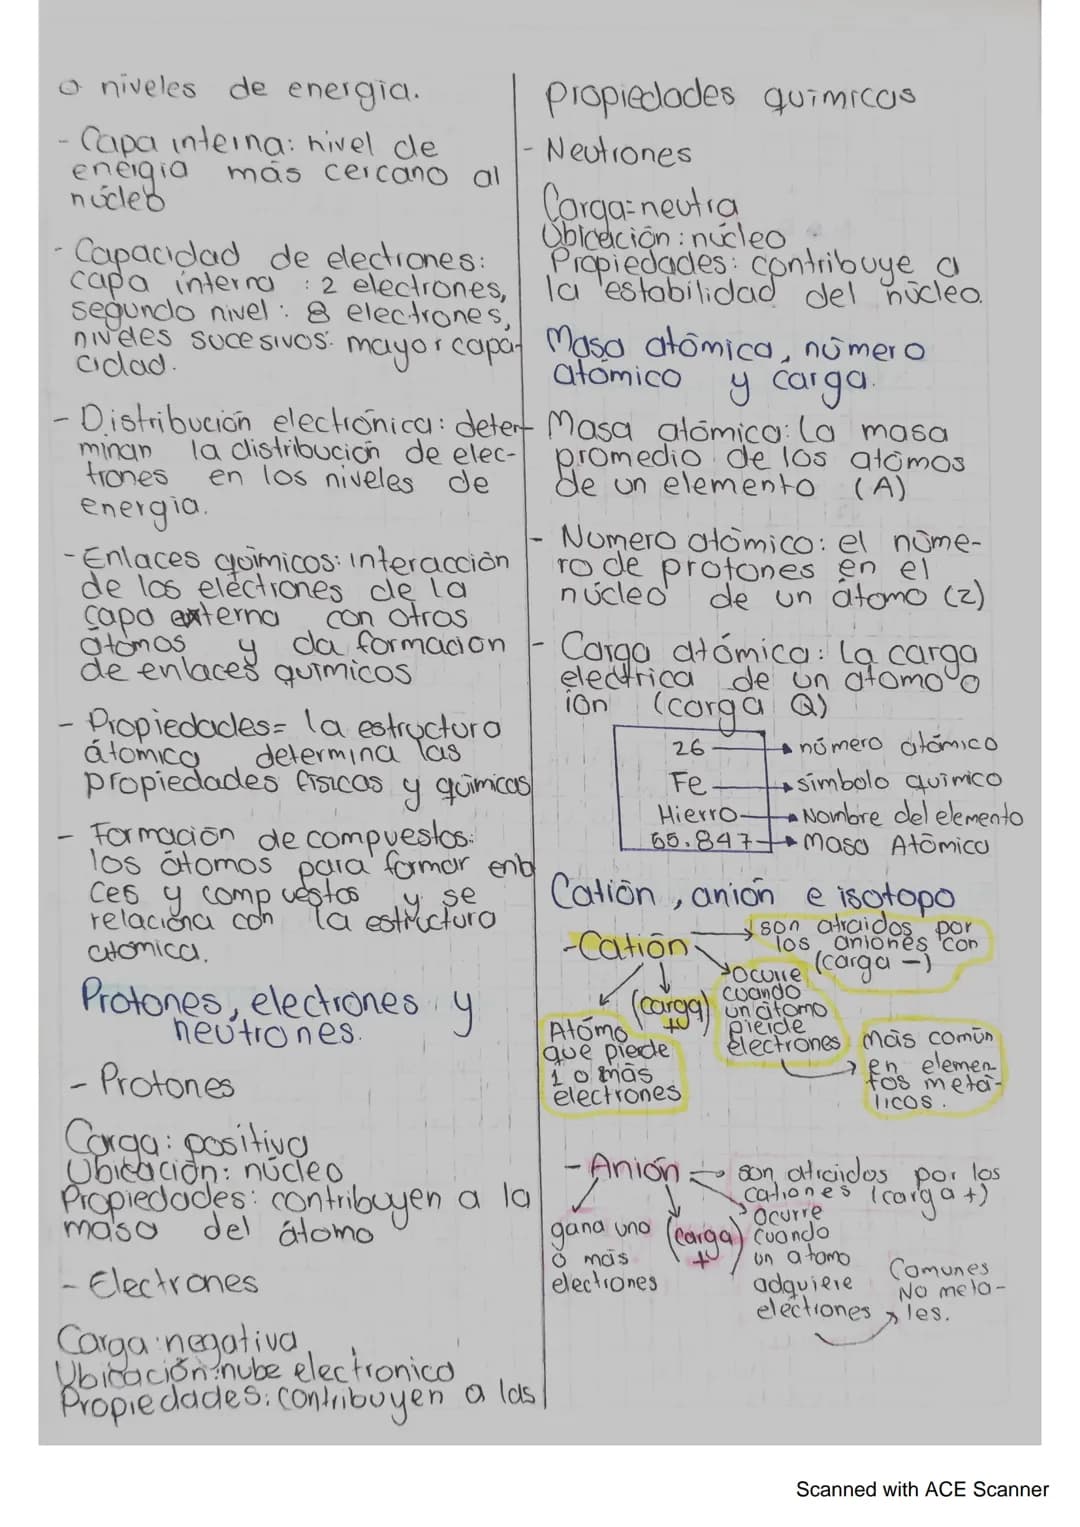 o niveles de energia.
- Capa interna: nivel de
energia más cercano al
núcleo
- Capacidad de electrones:
capa interna : 2 electrones,
segundo nivel : 8 electrones,
niveles sucesivos: mayor capa-
cidad.
- Distribución electrónica: deter-
minan la distribución de elec-
trones en los niveles de
energia.
- Enlaces químicos: interacción
de los electrones de la
capa externa con otros
átomos y da formacion
de enlaces químicos
- Propiedades= la estructura
átomica determina las
propiedades físicas y químicas
- Formación de compuestos:
los átomos para formar enla
ces y compuestos y se
relaciona con la estructura
atomica.
Protones, electrones y
neutrones.
- Protones
Carga: positiva
Ubicación: núcleo
Propiedades: contribuyen a la
masa del átomo
- Electrones
Carga: negativa
Ubicación: nube electronica
Propiedades: contribuyen a las
propiedades químicas
- Neutrones
Carga= neutra
Ubicación: núcleo
Propiedades: contribuye a
la estabilidad del núcleo.
Masa atómica, número
atómico y carga.
Masa atómica: La masa
promedio de los atómos
de un elemento (A)
- Numero atómico: el núme-
ro de protones en el
núcleo de un átomo (z)
- Carga atómica: La carga
electrica de un atomo o
ión (carga Q)
26 → número atómico
Fe → símbolo químico
Hierro → Nombre del elemento
55.847 → Masa Atómica
Catión, anión e isotopo
- Catión
son atraidos por
los aniones con
(carga -)
(carga +)
Ocurre
cuando
un átomo
pierde
electrones
Atómo
que pierde
1 o más
electrones
más común
en elemen-
tos metá-
licos.
- Anión → son atraidos por los
cationes (carga +)
gana uno
o más
electrones
(carga +)
Ocurre
cuando
un atomo
adquiere
electrones
Comunes
No meta-
les.
Scanned with ACE Scanner